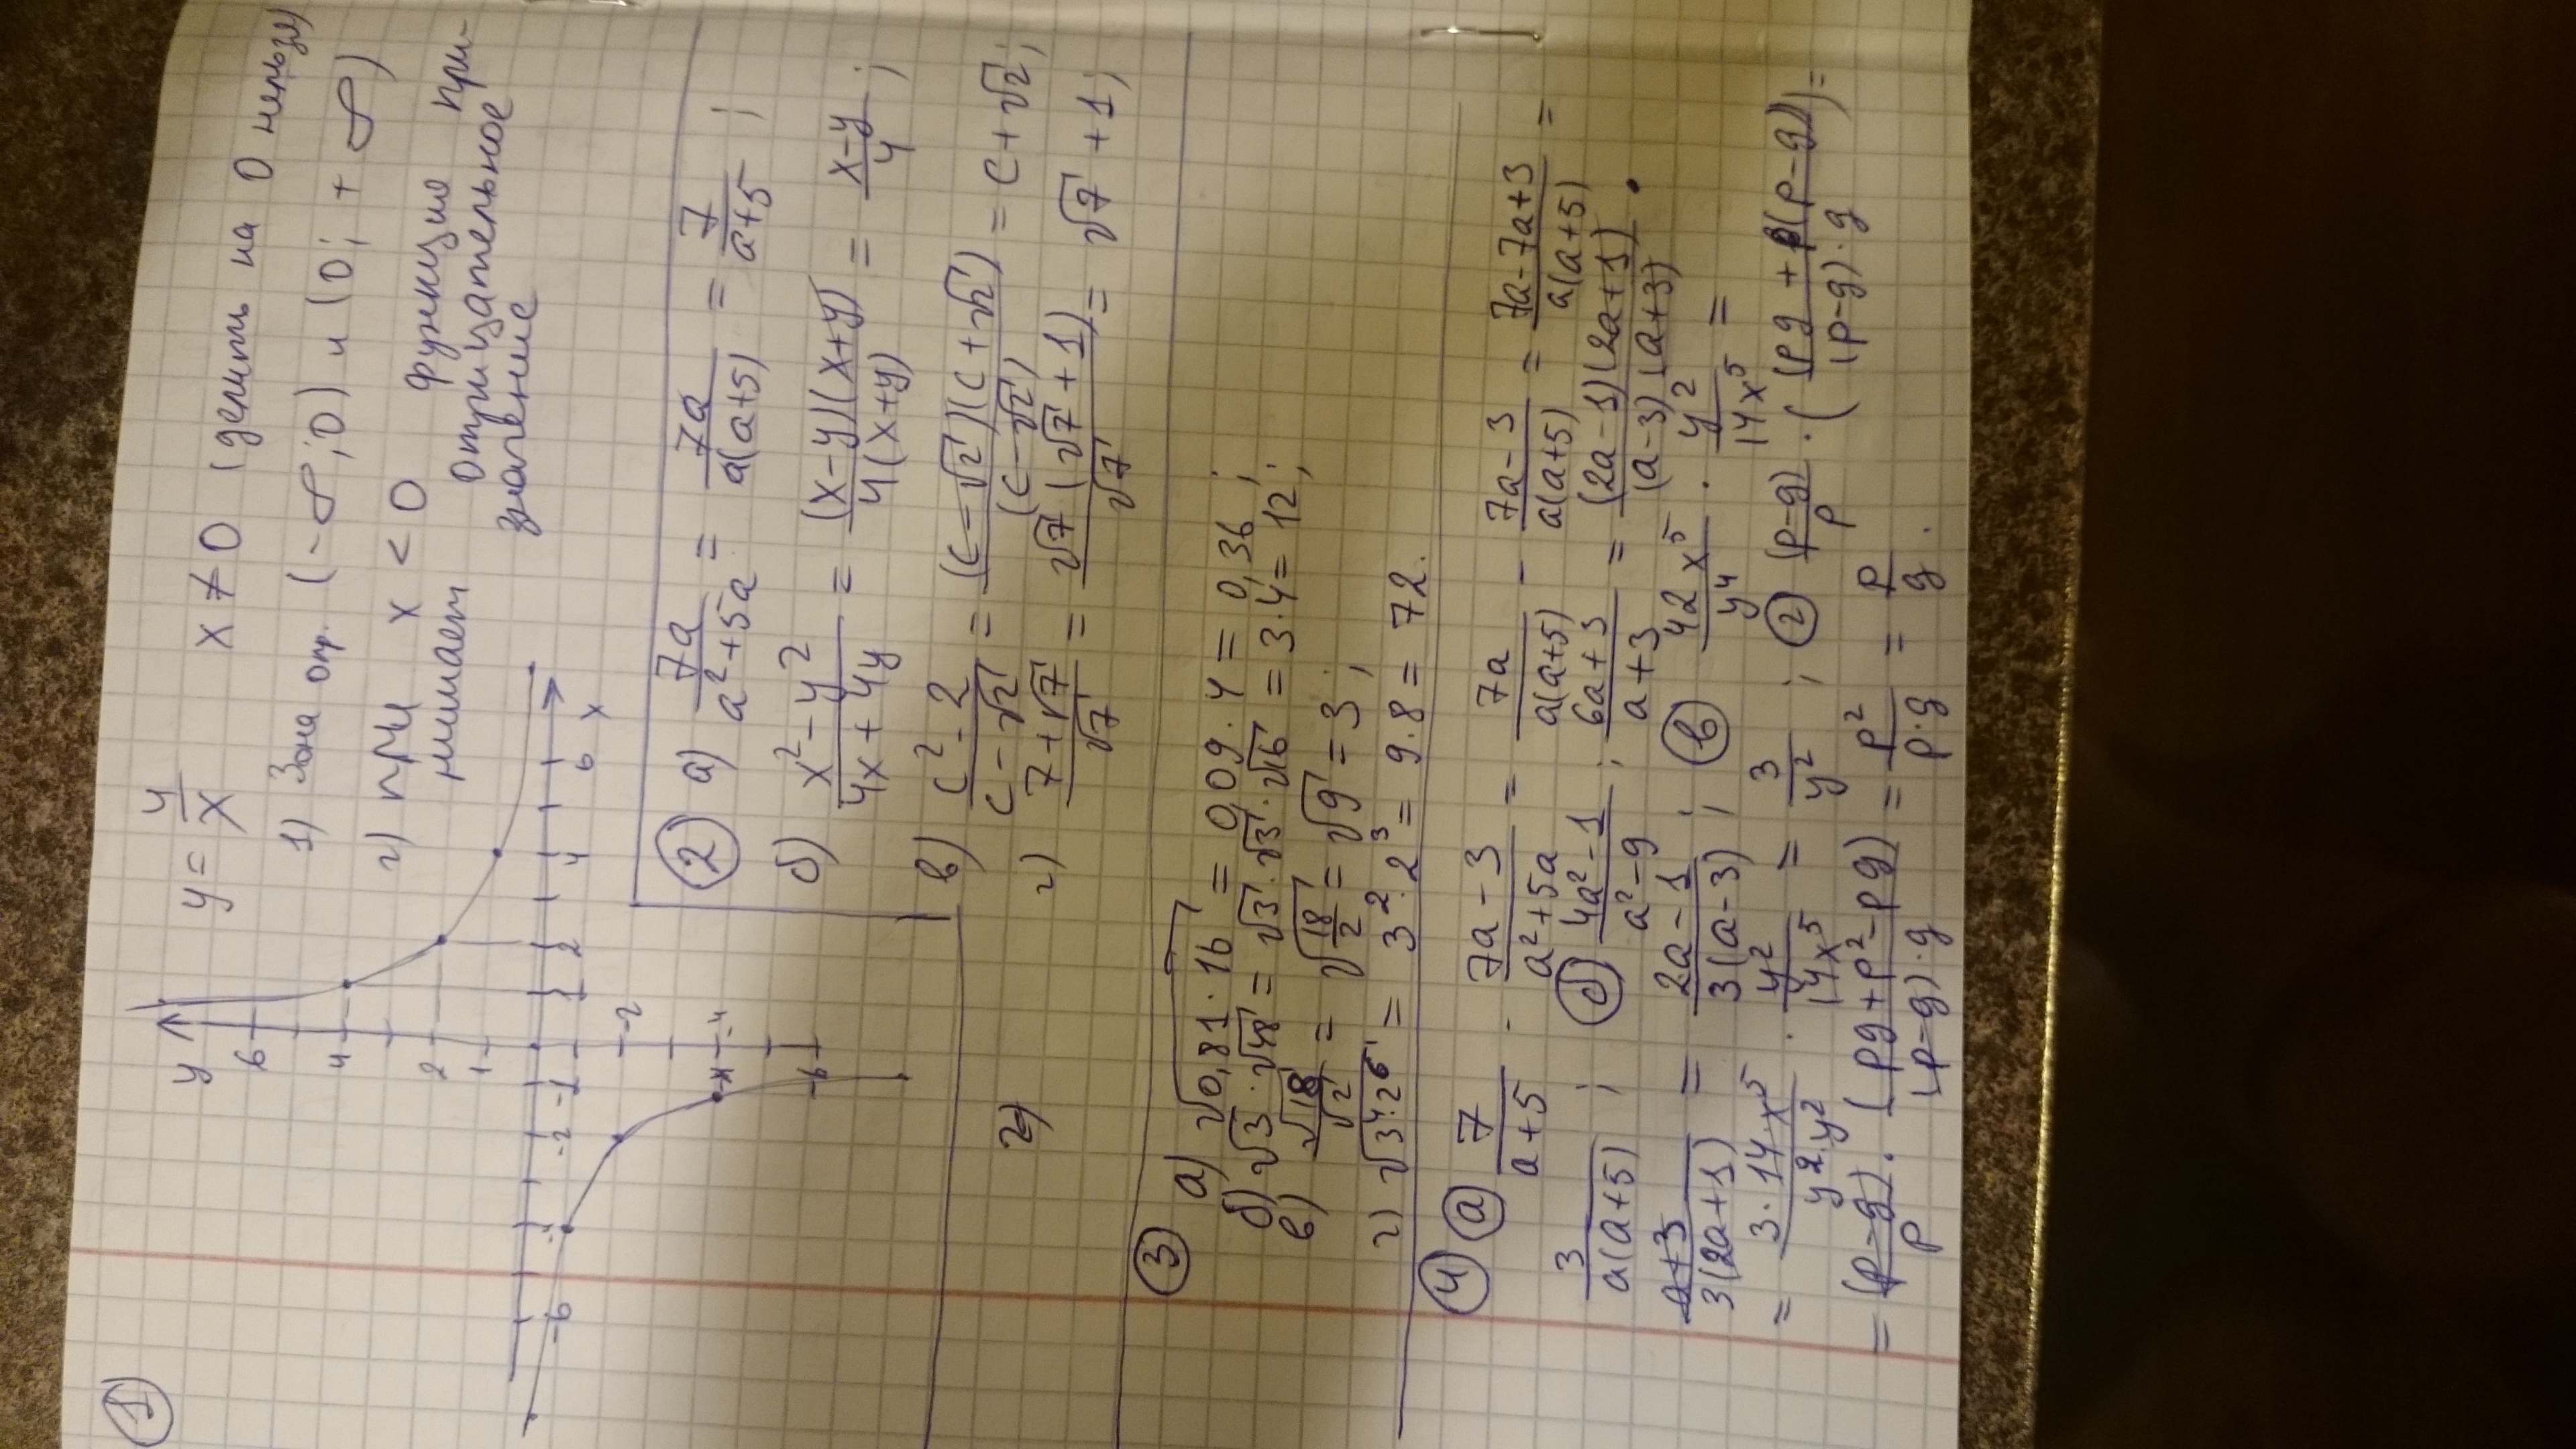 1
y = 4/x   x ≠ 0 (делить на 0 нельзя)
1) Зона опр. (-∞; 0) и (0; +∞)
2) при x < 0 функция при-
нимает отрицательное
значение
y
6
4
2
1
-1
-2
-4
-6
1 2 4 6 x
-6 -4 -2 -1
2 а) 7a/(a²+5a) = 7a/(a(a+5)) = 7/(a+5);
б) (x²-y²)/(4x+4y) = ((x-y)(x+y))/(4(x+y)) = (x-y)/4;
в) (c²-2)/(c-√2) = ((c-√2)(c+√2))/(c-√2) = c+√2;
г) (7+√7)/√7 = (√7(√7+1))/√7 = √7+1;
г)
3 а) √0,81·16 = 0,09·4 = 0,36;
б) √3·√48 = √3·√3·√16 = 3·4 = 12;
в) √18/√2 = √(18/2) = √9 = 3;
г) √3⁴·2⁶ = 3²·2³ = 9·8 = 72.
4 а 7/(a+5) - (7a-3)/(a²+5a) = 7a/(a(a+5)) - (7a-3)/(a(a+5)) = (7a-7a+3)/(a(a+5)) =
3/(a(a+5)); б (4a²-1)/(a²-9) : (6a+3)/(a+3) = ((2a-1)(2a+1))/((a-3)(a+3)) ·
(a+3)/(3(2a+1)) = (2a-1)/(3(a-3)); в 42x⁵/y⁴ · y²/14x⁵ =
= (3·14x⁵)/(y²·y²) · y²/14x⁵ = 3/y²; г (p-g)/p · ((pg+p(p-g))/((p-g)·g)) =
= (p-g)/p · (pg+p²-pg)/((p-g)·g) = p²/(p·g) = p/g.